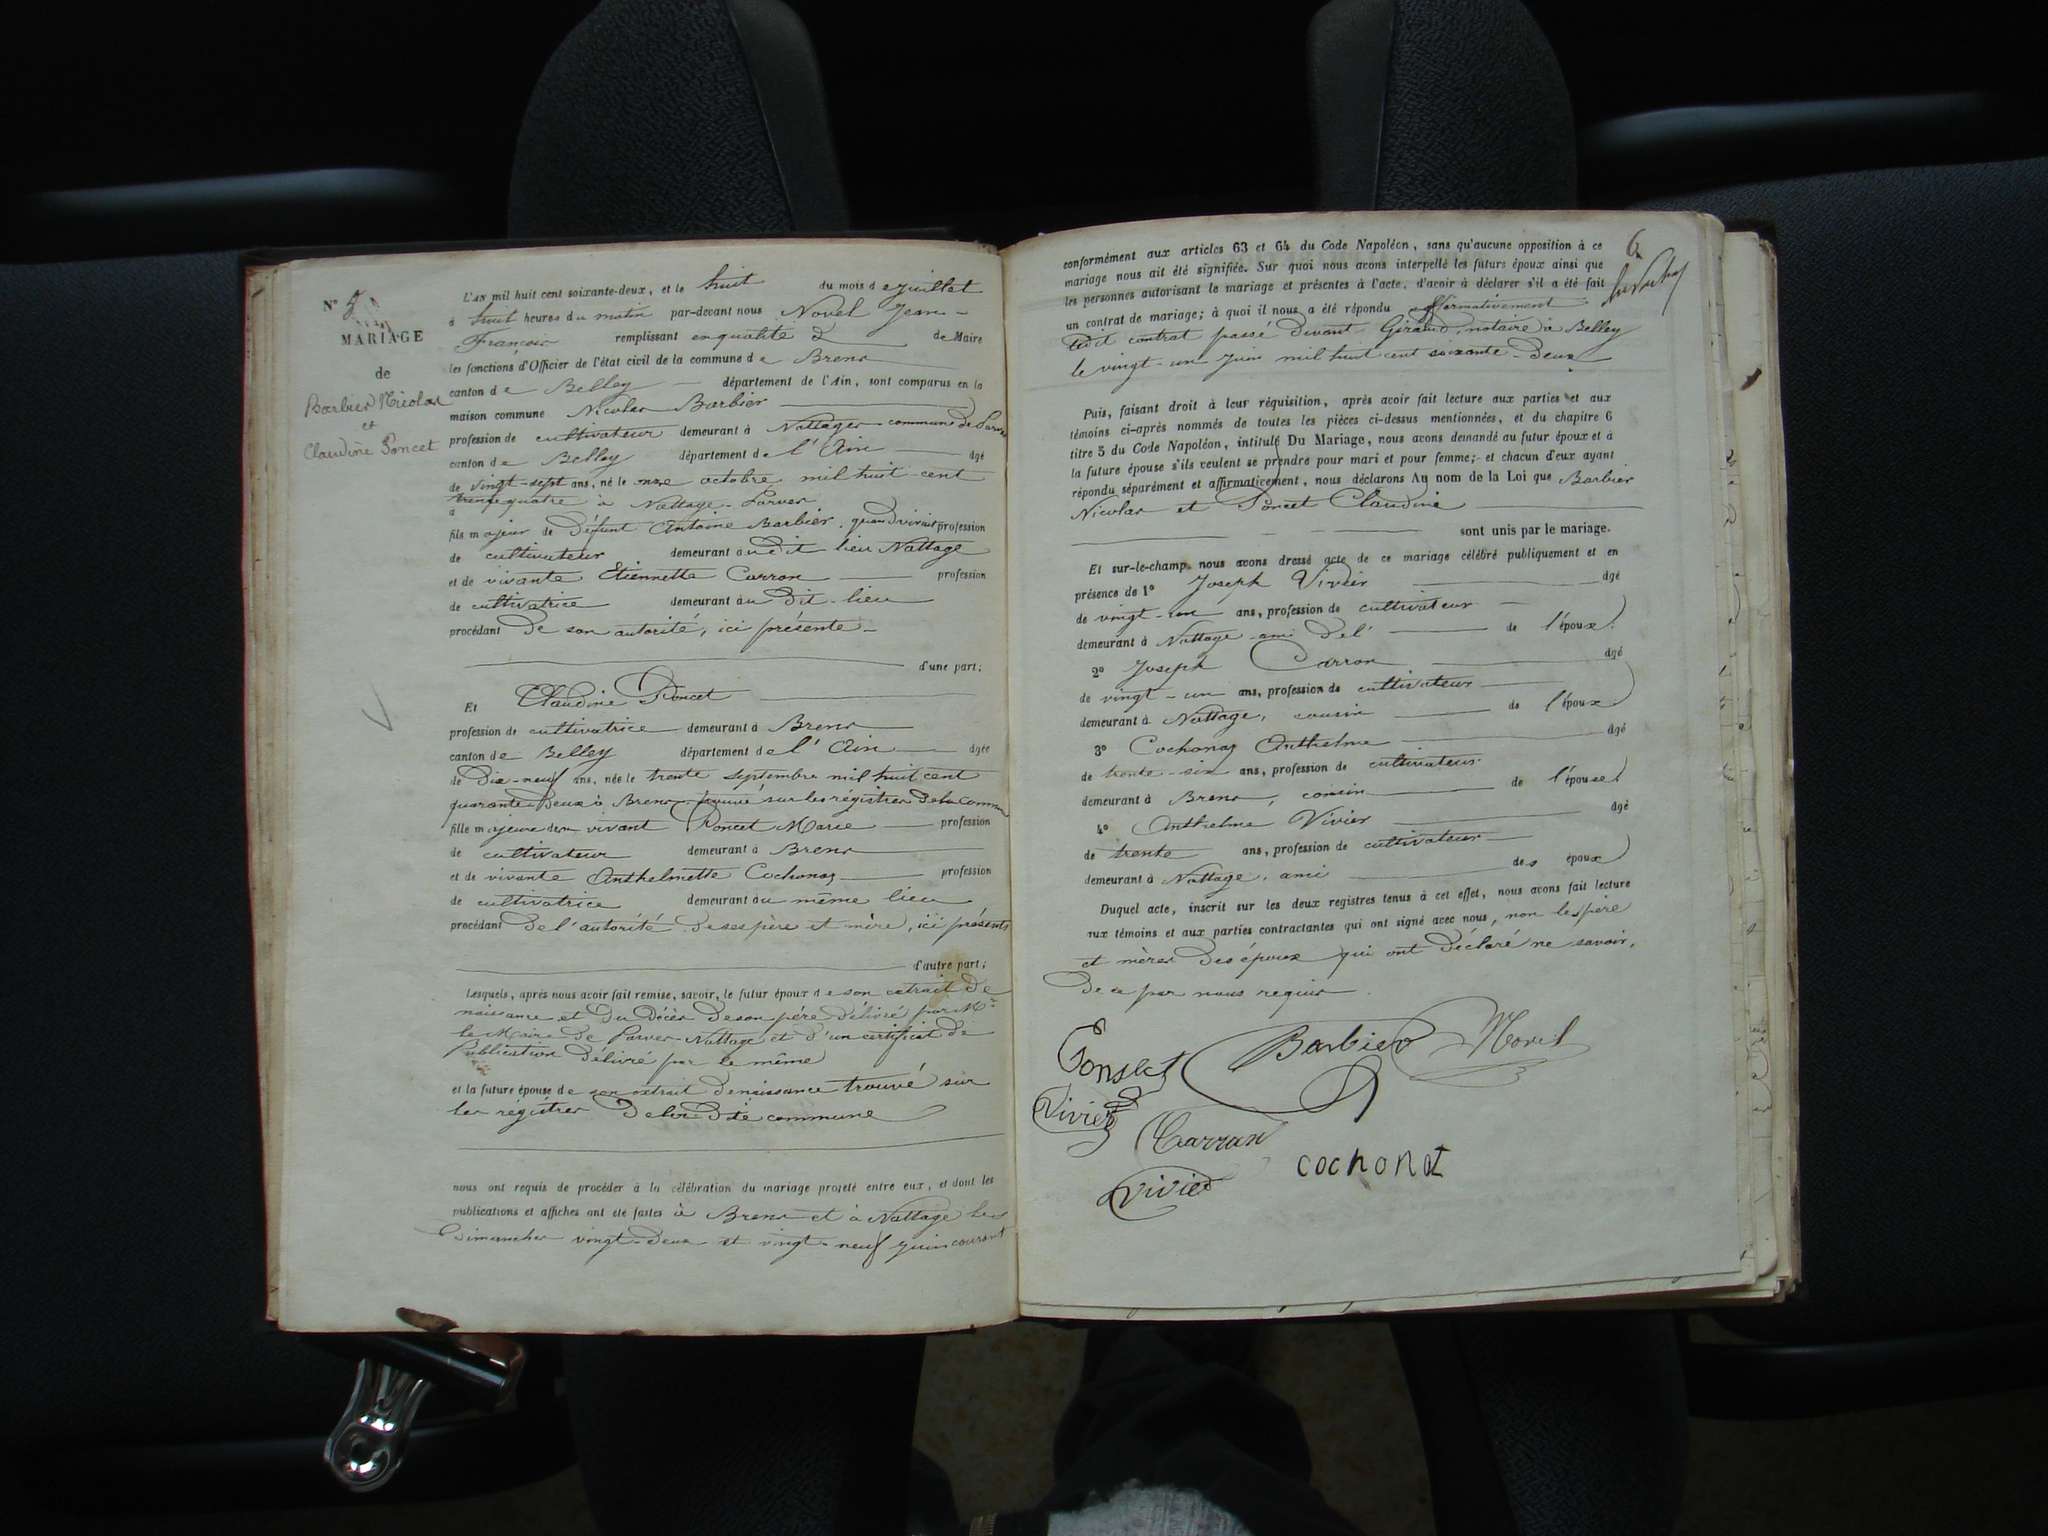 N° 5
MARIAGE
de
Barbier Nicolas
et
Claudine Poncet
L'AN mil huit cent soixante-deux, et le huit du mois de juillet
à huit heures du matin par-devant nous Novel Jean-
François remplissant en qualité de Maire
les fonctions d'Officier de l'état civil de la commune de Brens
canton de Belley département de l'Ain, sont comparus en la
maison commune Nicolas Barbier
profession de cultivateur demeurant à Nattages commune de Parves
canton de Belley département de l'Ain âgé
de vingt-sept ans, né le onze octobre mil huit cent
trente quatre à Nattage-Parves
fils majeur de défunt Antoine Barbier, quand vivait profession
de cultivateur demeurant au dit lieu Nattage
et de vivante Etiennette Carron profession
de cultivatrice demeurant au dit-lieu
procédant de son autorité, ici présente-
d'une part;
Et Claudine Poncet
profession de cultivatrice demeurant à Brens
canton de Belley département de l'Ain âgée
de dix-neuf ans, née le trente septembre mil huit cent
quarante deux à Brens trouvé sur les régistres de la commune
fille majeure de vivant Poncet Marie profession
de cultivateur demeurant à Brens
et de vivante Anthelmette Cochonat profession
de cultivatrice demeurant au même lieu
procédant de l'autorité de ses père et mère, ici présents
d'autre part;
Lesquels, après nous avoir fait remise, savoir, le futur époux de son extrait de
naissance et du décès de son père délivré par Mr
le Maire de Parves-Nattage et d'un certificat de
Publication délivré par le même
et la future épouse de son extrait de naissance trouvé sur
les régistres de la dite commune
nous ont requis de procéder à la célébration du mariage projeté entre eux, et dont les
publications et affiches ont été faites à Brens et à Nattage les
Dimanches vingt-deux et vingt-neuf juin courant
6
conformément aux articles 63 et 64 du Code Napoléon, sans qu'aucune opposition à ce
mariage nous ait été signifiée. Sur quoi nous avons interpellé les futurs époux ainsi que
les personnes autorisant le mariage et présentes à l'acte, d'avoir à déclarer s'il a été fait
un contrat de mariage; à quoi il nous a été répondu affirmativement
ledit contrat passé devant Giraud, notaire à Belley
le vingt-un juin mil huit cent soixante-deux
Puis, faisant droit à leur réquisition, après avoir fait lecture aux parties et aux
témoins ci-après nommés de toutes les pièces ci-dessus mentionnées, et du chapitre 6
titre 5 du Code Napoléon, intitulé Du Mariage, nous avons demandé au futur époux et à
la future épouse s'ils veulent se prendre pour mari et pour femme; et chacun d'eux ayant
répondu séparément et affirmativement, nous déclarons Au nom de la Loi que Barbier
Nicolas et Poncet Claudine
sont unis par le mariage.
Et sur-le-champ nous avons dressé acte de ce mariage célébré publiquement et en
présence de 1° Joseph Vivier âgé
de vingt-un ans, profession de cultivateur
demeurant à Nattage ami de l' de l'époux.
2° Joseph Carron âgé
de vingt-un ans, profession de cultivateur
demeurant à Nattage, cousin de l'époux
3° Cochonat Anthelme âgé
de trente-six ans, profession de cultivateur
demeurant à Brens, cousin de l'épouse
4° Anthelme Vivier âgé
de trente ans, profession de cultivateur
demeurant à Nattage, ami des époux
Duquel acte, inscrit sur les deux registres tenus à cet effet, nous avons fait lecture
aux témoins et aux parties contractantes qui ont signé avec nous, non les père
et mères des époux qui ont déclaré ne savoir,
de ce par nous requis.
Ponset Barbier Novel
Vivier
Carron
cochonat
Vivier